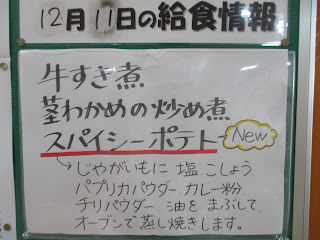 12月11日の給食情報
牛すき煮
茎わかめの炒め煮
スパイシーポテト New
じゃがいもに 塩、こしょう、
パプリカパウダー、カレー粉、
チリパウダー、油を まぶして、
オーブンで蒸し焼きします。